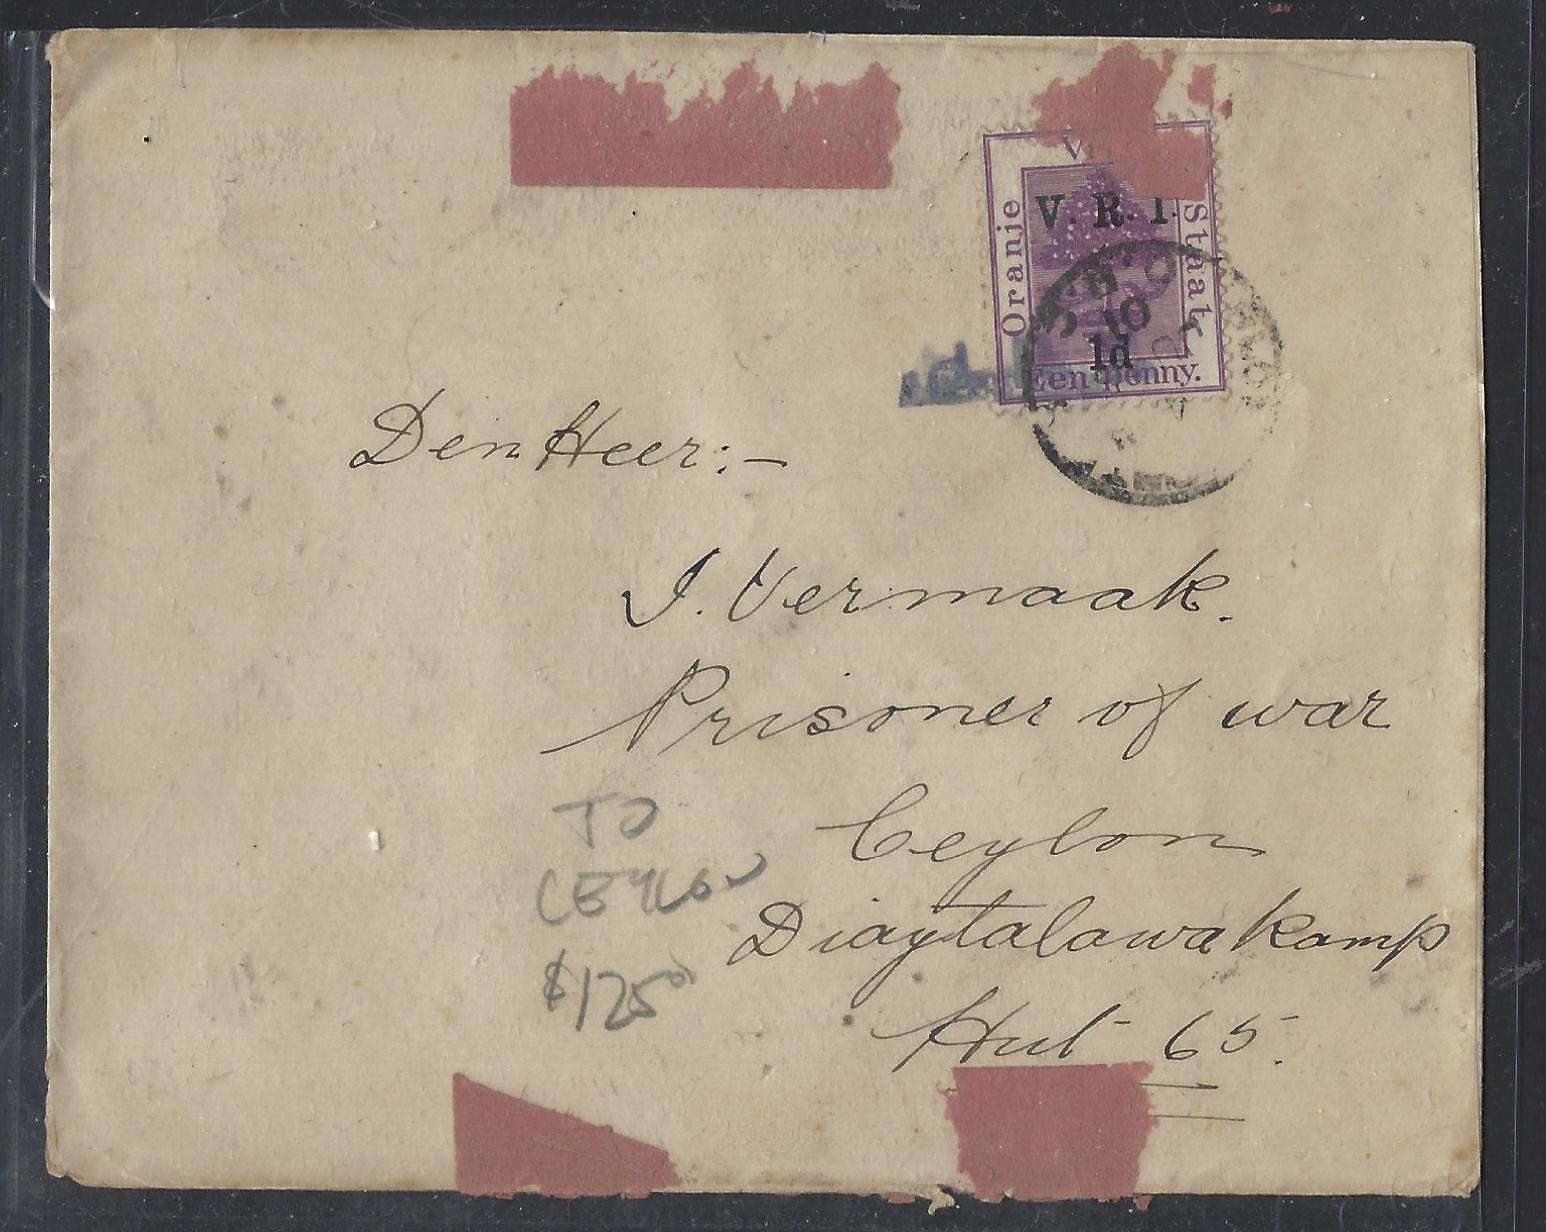 Vrij
Oranje
Staat.
V. R. I.
1d
Een penny.
10
Den Heer:-
J. Vermaak.
Prisoner of war
Ceylon
Diaytalawa kamp
Hut 65.
TO
CEYLON
$125⁰⁰